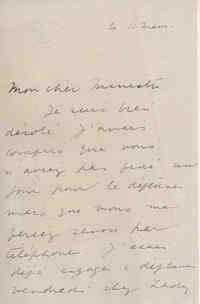 Mon cher Ministre
Je suis bien
désolé J'avais
compris que vous
n'aviez pas fixé un
jour pour le déjeuner
mais que vous me
feriez savoir par
téléphone J'étais
déjà engagé à déjeuner
vendredi chez Lady